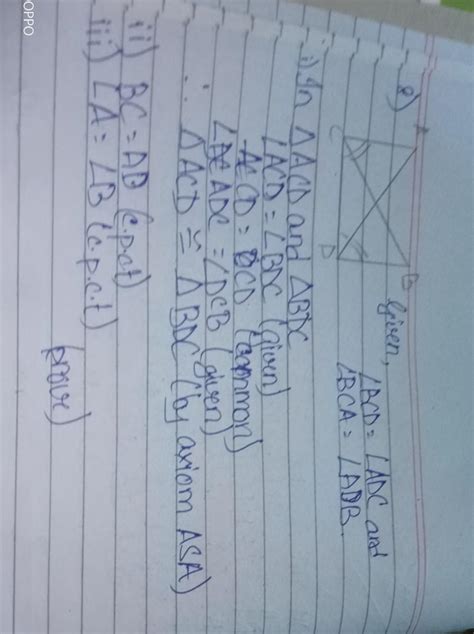 8)
A
B
C
D
given,
∠BCD = ∠ADC and
∠BCA = ∠ADB
i) In △ACD and △BDC
∠ACD = ∠BDC (given)
CD = CD (common)
∠ADC = ∠DCB (given)
∴ △ACD ≅ △BDC (by axiom ASA)
ii) BC = AD (c.p.ct)
iii) ∠A = ∠B (c.p.c.t)
(prove)
OPPO